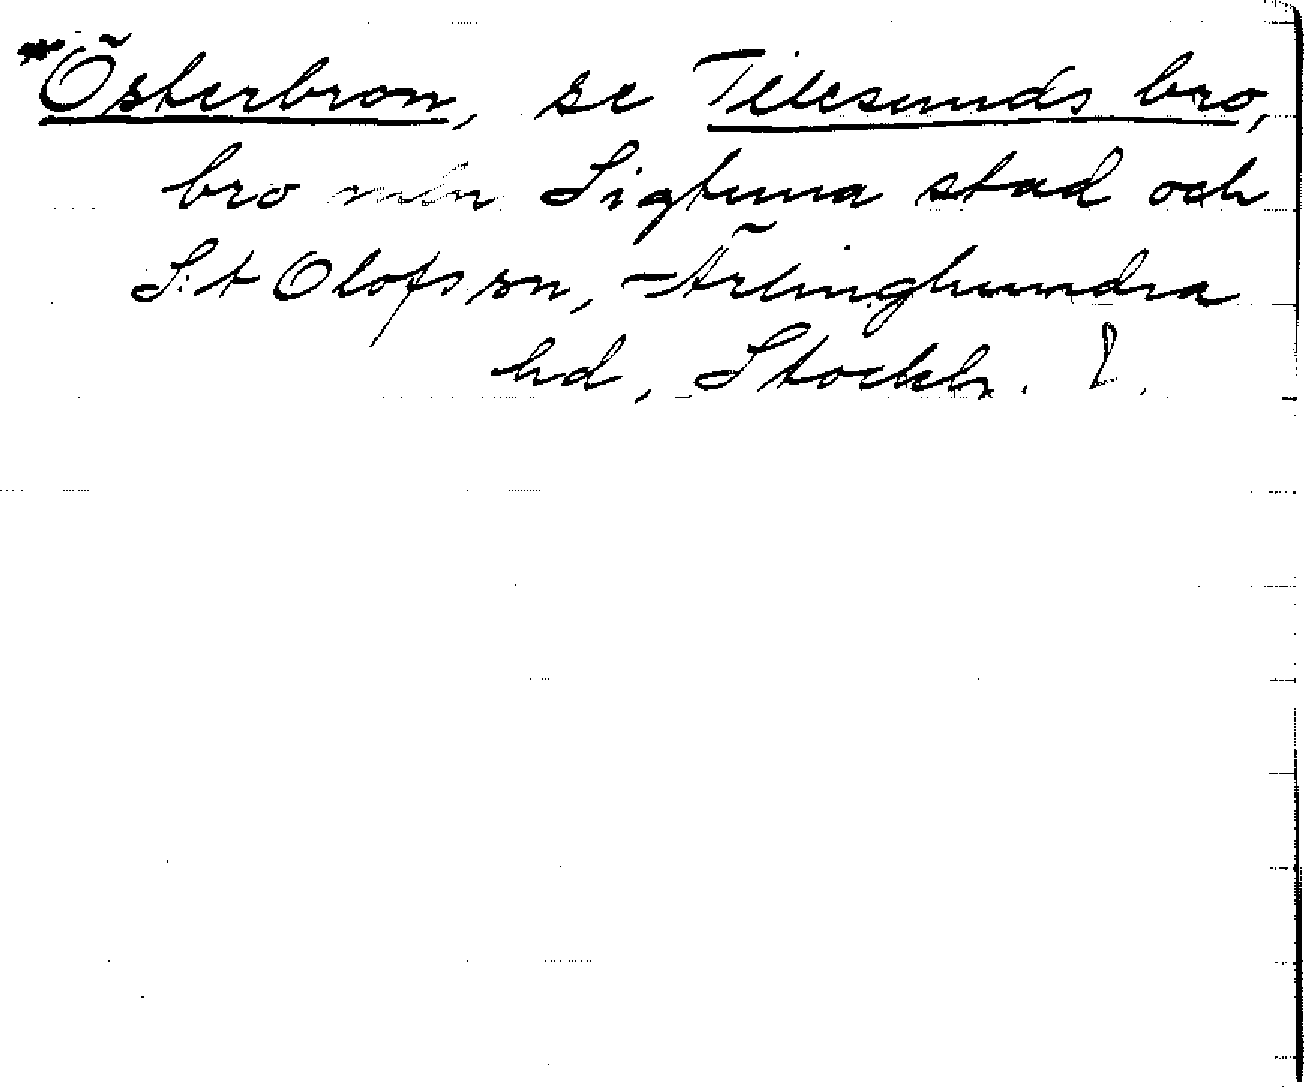 *Österbron, se Tilesunds bro,
bro mln Sigtuna stad och
S:t Olofs sn, Ärlinghundra
hd, Stockh. l.